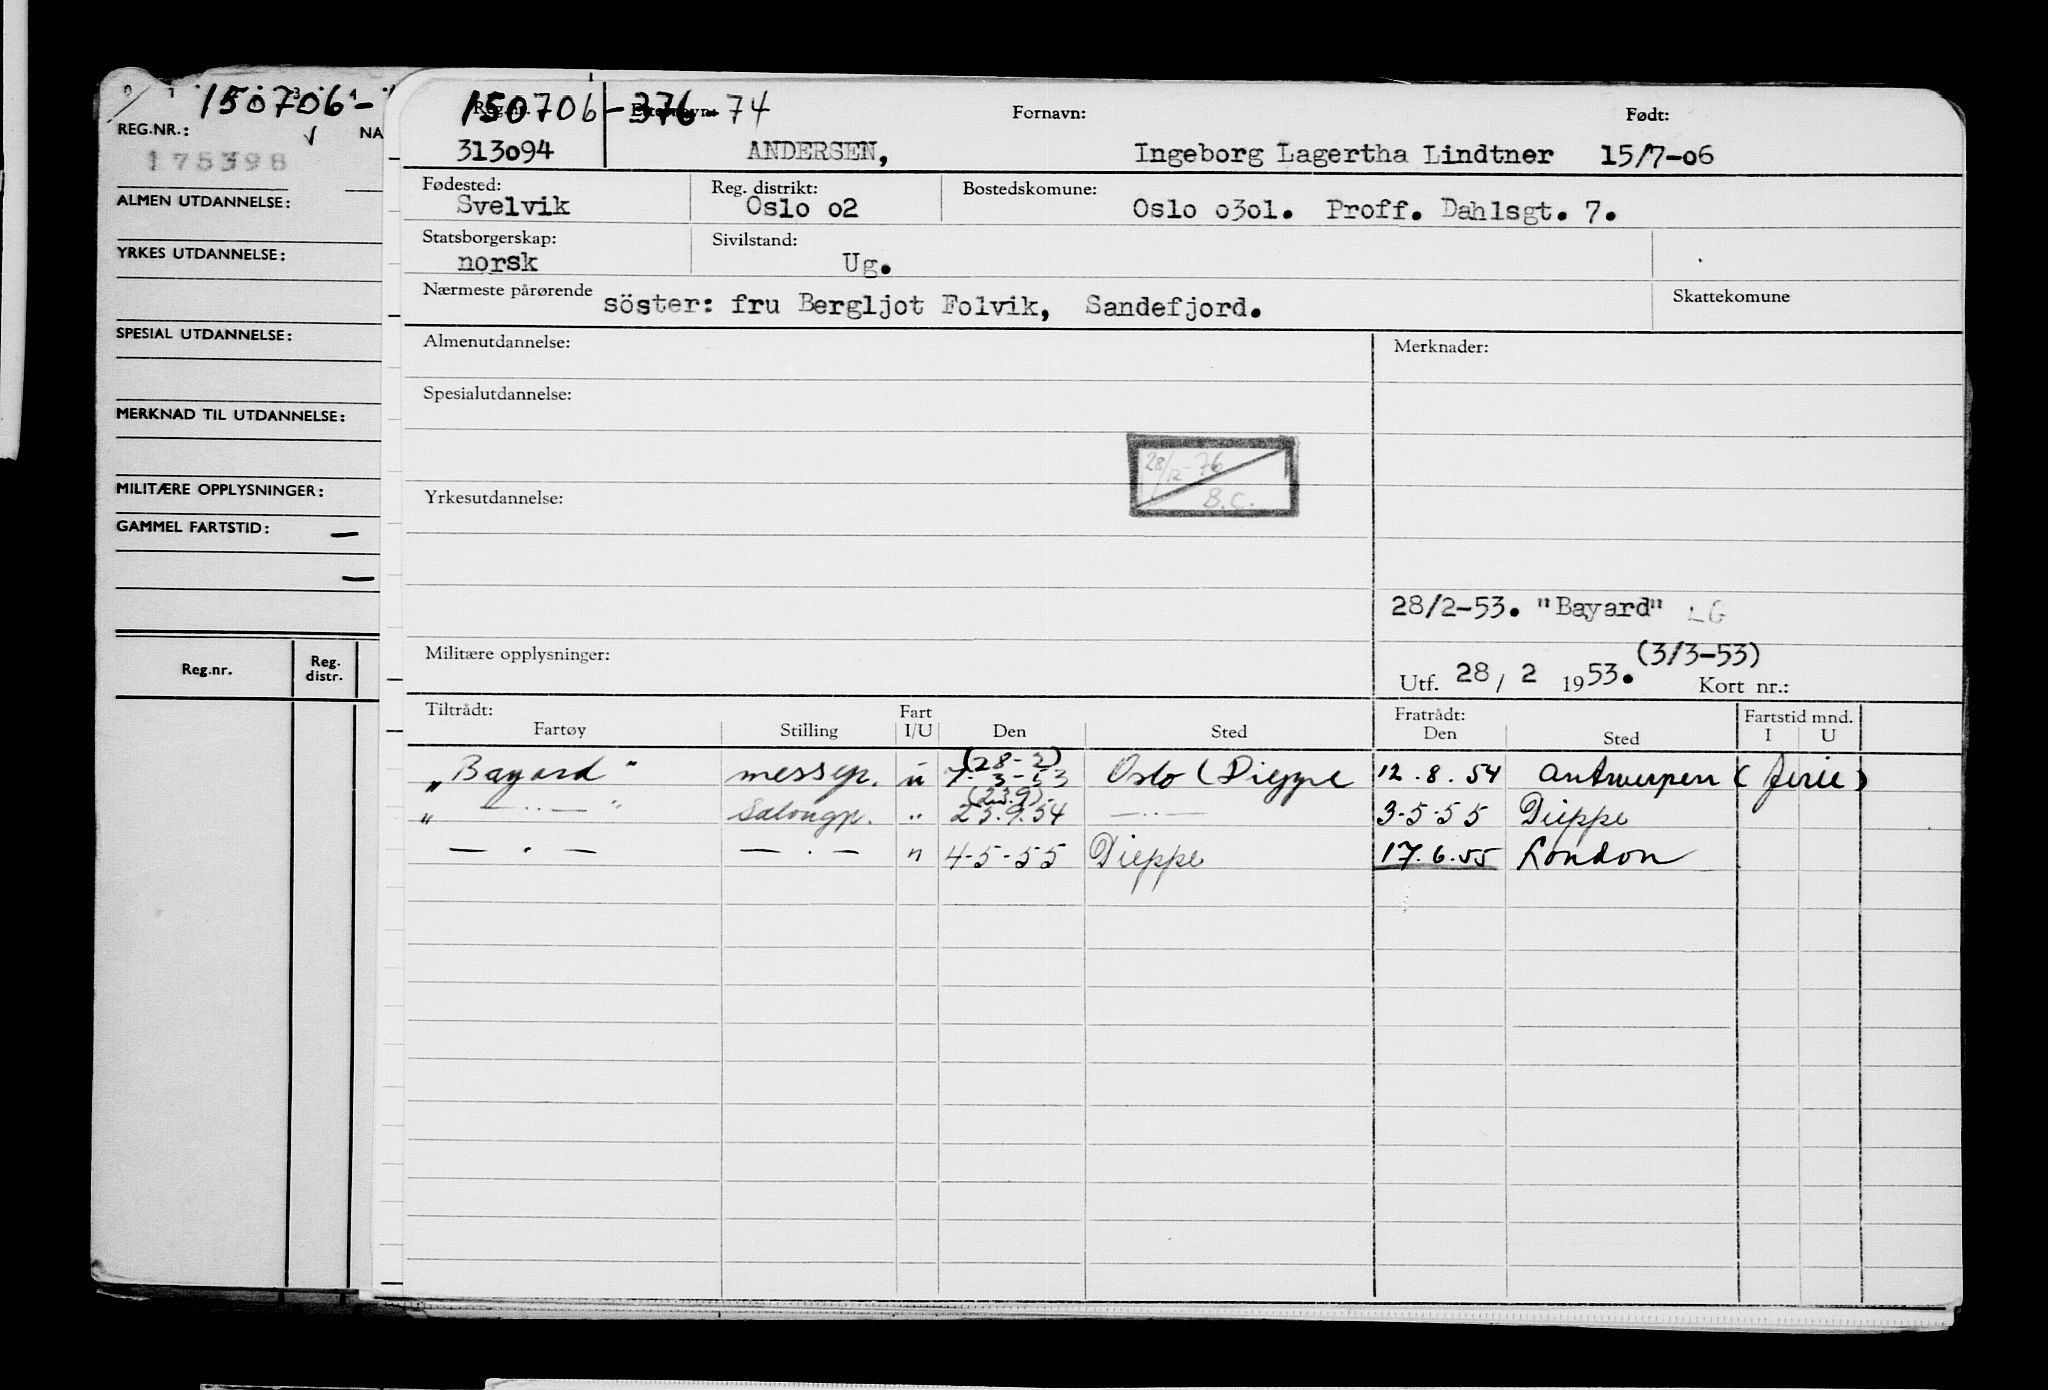 150706-
REG.NR.: NA
175398
ALMEN UTDANNELSE:
YRKES UTDANNELSE:
SPESIAL UTDANNELSE:
MERKNAD TIL UTDANNELSE:
MILITÆRE OPPLYSNINGER:
GAMMEL FARTSTID: —
—
Reg.nr. Reg. distr.
150706-376-74 Fornavn: Født:
313094 ANDERSEN, Ingeborg Lagertha Lindtner 15/7-06
Fødested: Reg. distrikt: Bostedskomune:
Svelvik Oslo o2 Oslo o3o1. Proff. Dahlsgt. 7.
Statsborgerskap: Sivilstand:
norsk Ug.
Nærmeste pårørende söster: fru Bergljot Folvik, Sandefjord. Skattekomune
Almenutdannelse: Merknader:
Spesialutdannelse:
28/12-76
B.C.
Yrkesutdannelse:
28/2-53. "Bayard" LG
Militære opplysninger: (3/3-53)
Utf. 28/ 2 1953. Kort nr.:
Tiltrådt: Fart Fratrådt: Fartstid mnd.
Fartøy Stilling I/U Den Sted Den Sted I U
(28-2)
"Bayard" messep. u 7-3-53 Oslo (Dieppe 12.8.54 Antwerpen (ferie)
(23.9)
" — .. — " Salongp. " 25.9.54 — .. — 3-5-55 Dieppe
— . — — . — " 4-5-55 Dieppe 17.6.55 London